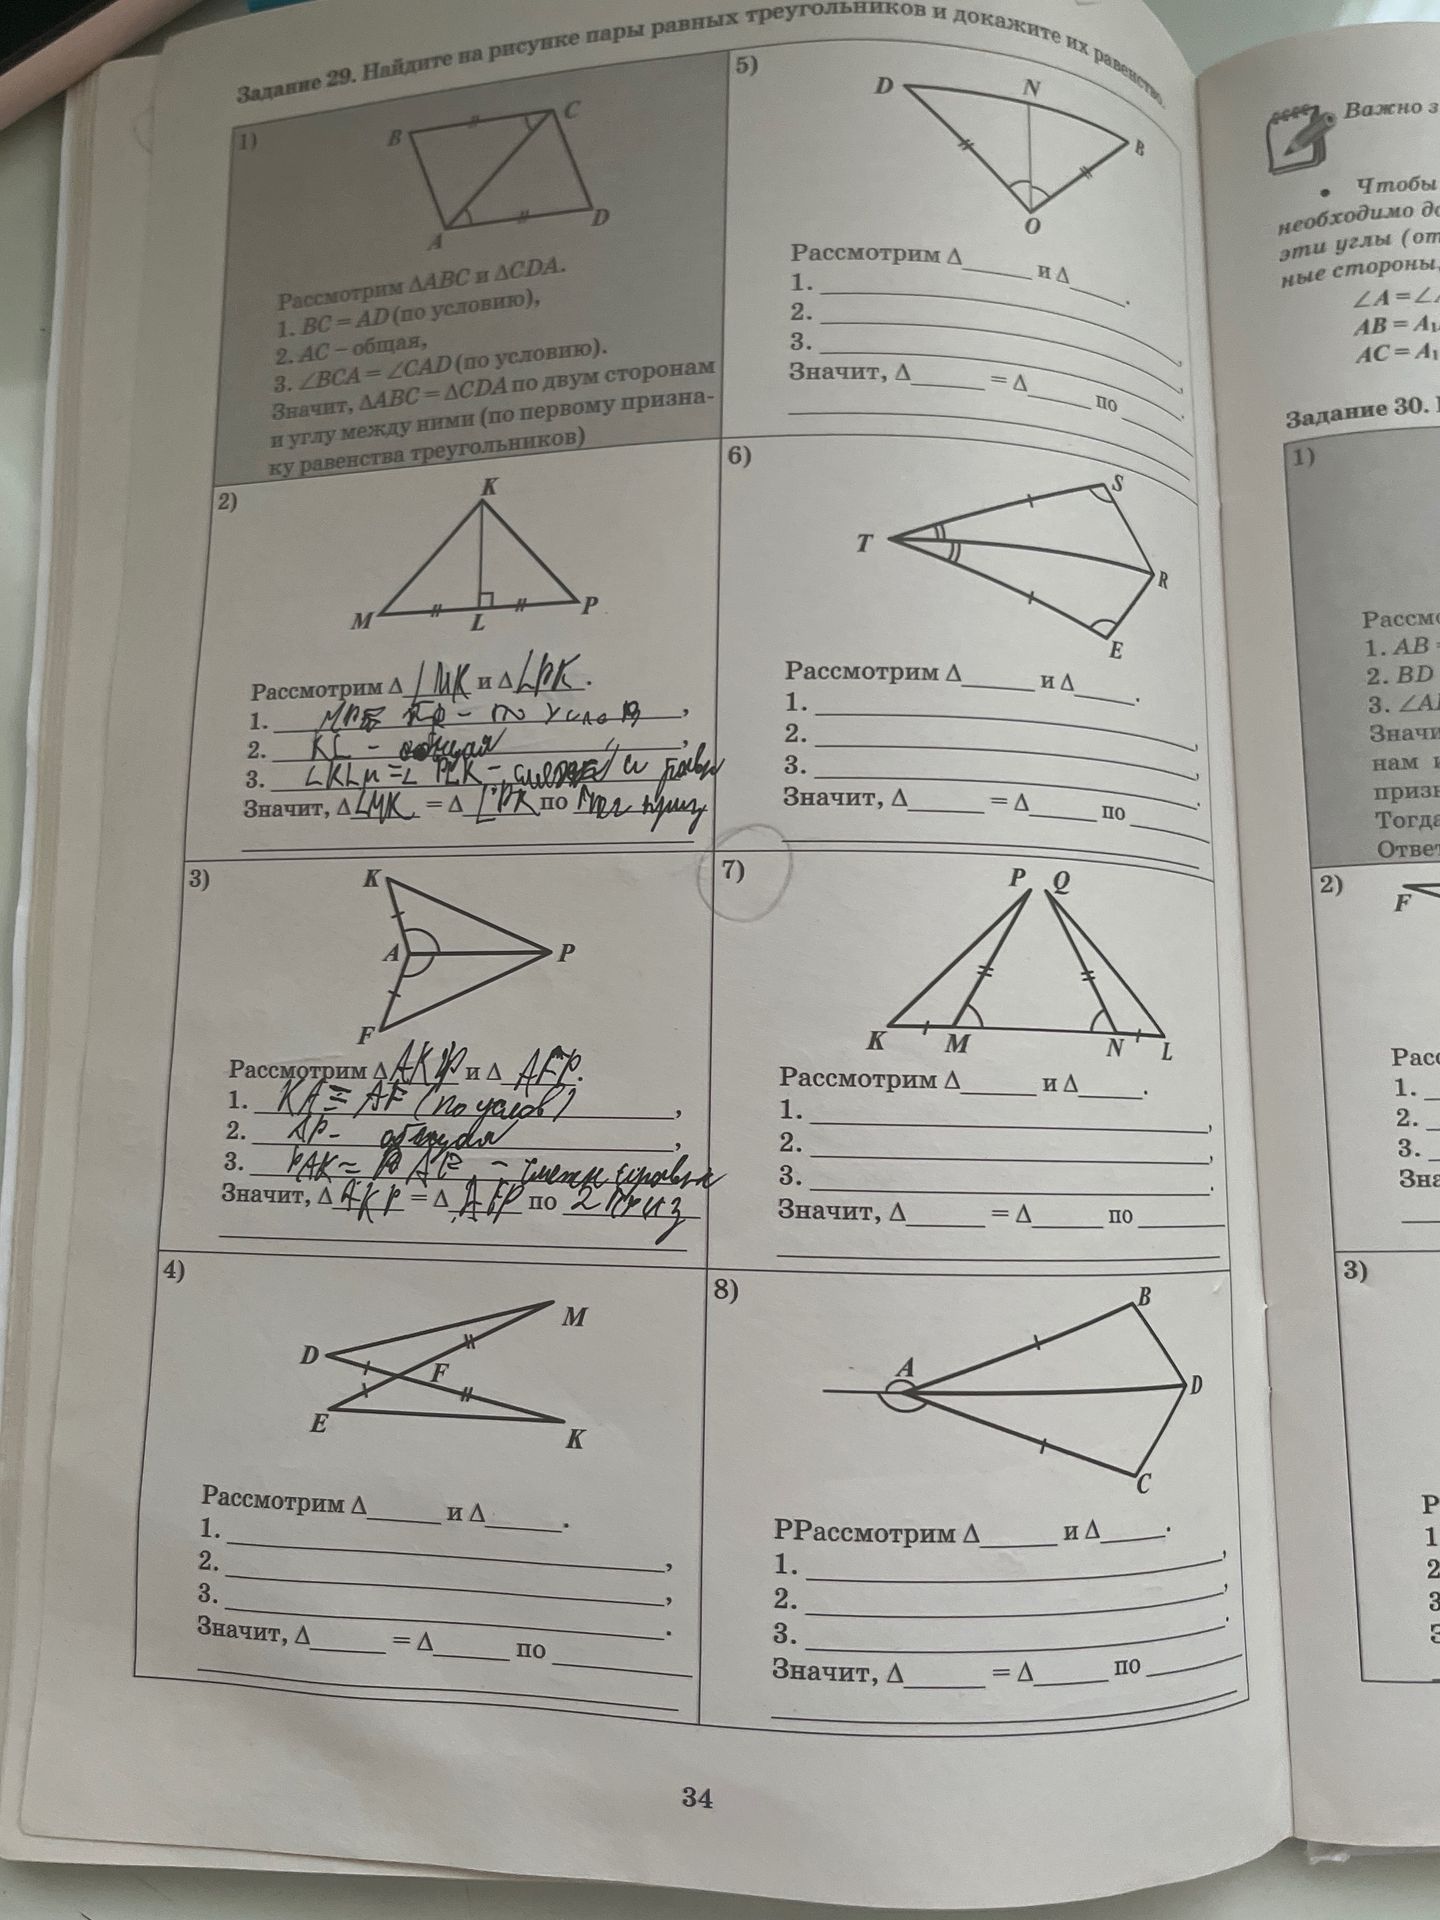 Задание 29. Найдите на рисунке пары равных треугольников и докажите их равенство.
1)
B
C
A
D
Рассмотрим ΔABC и ΔCDA.
1. BC = AD (по условию),
2. AC – общая,
3. ∠BCA = ∠CAD (по условию).
Значит, ΔABC = ΔCDA по двум сторонам
и углу между ними (по первому призна-
ку равенства треугольников)
2)
K
M
L
P
Рассмотрим Δ LMK и Δ LPK.
1. по услов,
2. KL – общая,
3. ∠KLM = ∠PLK –
Значит, Δ LMK = Δ LPK по
3)
K
A
P
F
Рассмотрим Δ AKP и Δ AFP.
1. KA = AF (по услов),
2. AP – общая,
3. PAK = PAF –
Значит, Δ AKP = Δ AFP по 2 приз
4)
M
D
F
E
K
Рассмотрим Δ_____ и Δ_____.
1. ,
2. ,
3. .
Значит, Δ_____ = Δ_____ по
5)
D
N
B
O
Рассмотрим Δ_____ и Δ_____.
1. ,
2. ,
3. .
Значит, Δ_____ = Δ_____ по
6)
S
T
R
E
Рассмотрим Δ_____ и Δ_____.
1. ,
2. ,
3. .
Значит, Δ_____ = Δ_____ по
7)
P Q
K M N L
Рассмотрим Δ_____ и Δ_____.
1. ,
2. ,
3. .
Значит, Δ_____ = Δ_____ по
8)
B
A
D
C
РРассмотрим Δ_____ и Δ_____.
1. ,
2. ,
3. .
Значит, Δ_____ = Δ_____ по
34
Важно
• Чтобы
необходимо
эти углы
ные стороны,
∠A = ∠
AB =
AC =
Задание 30.
1)
1. AB
2. BD
3.
нам
2)
F
1.
2.
3.
3)
1
2
3